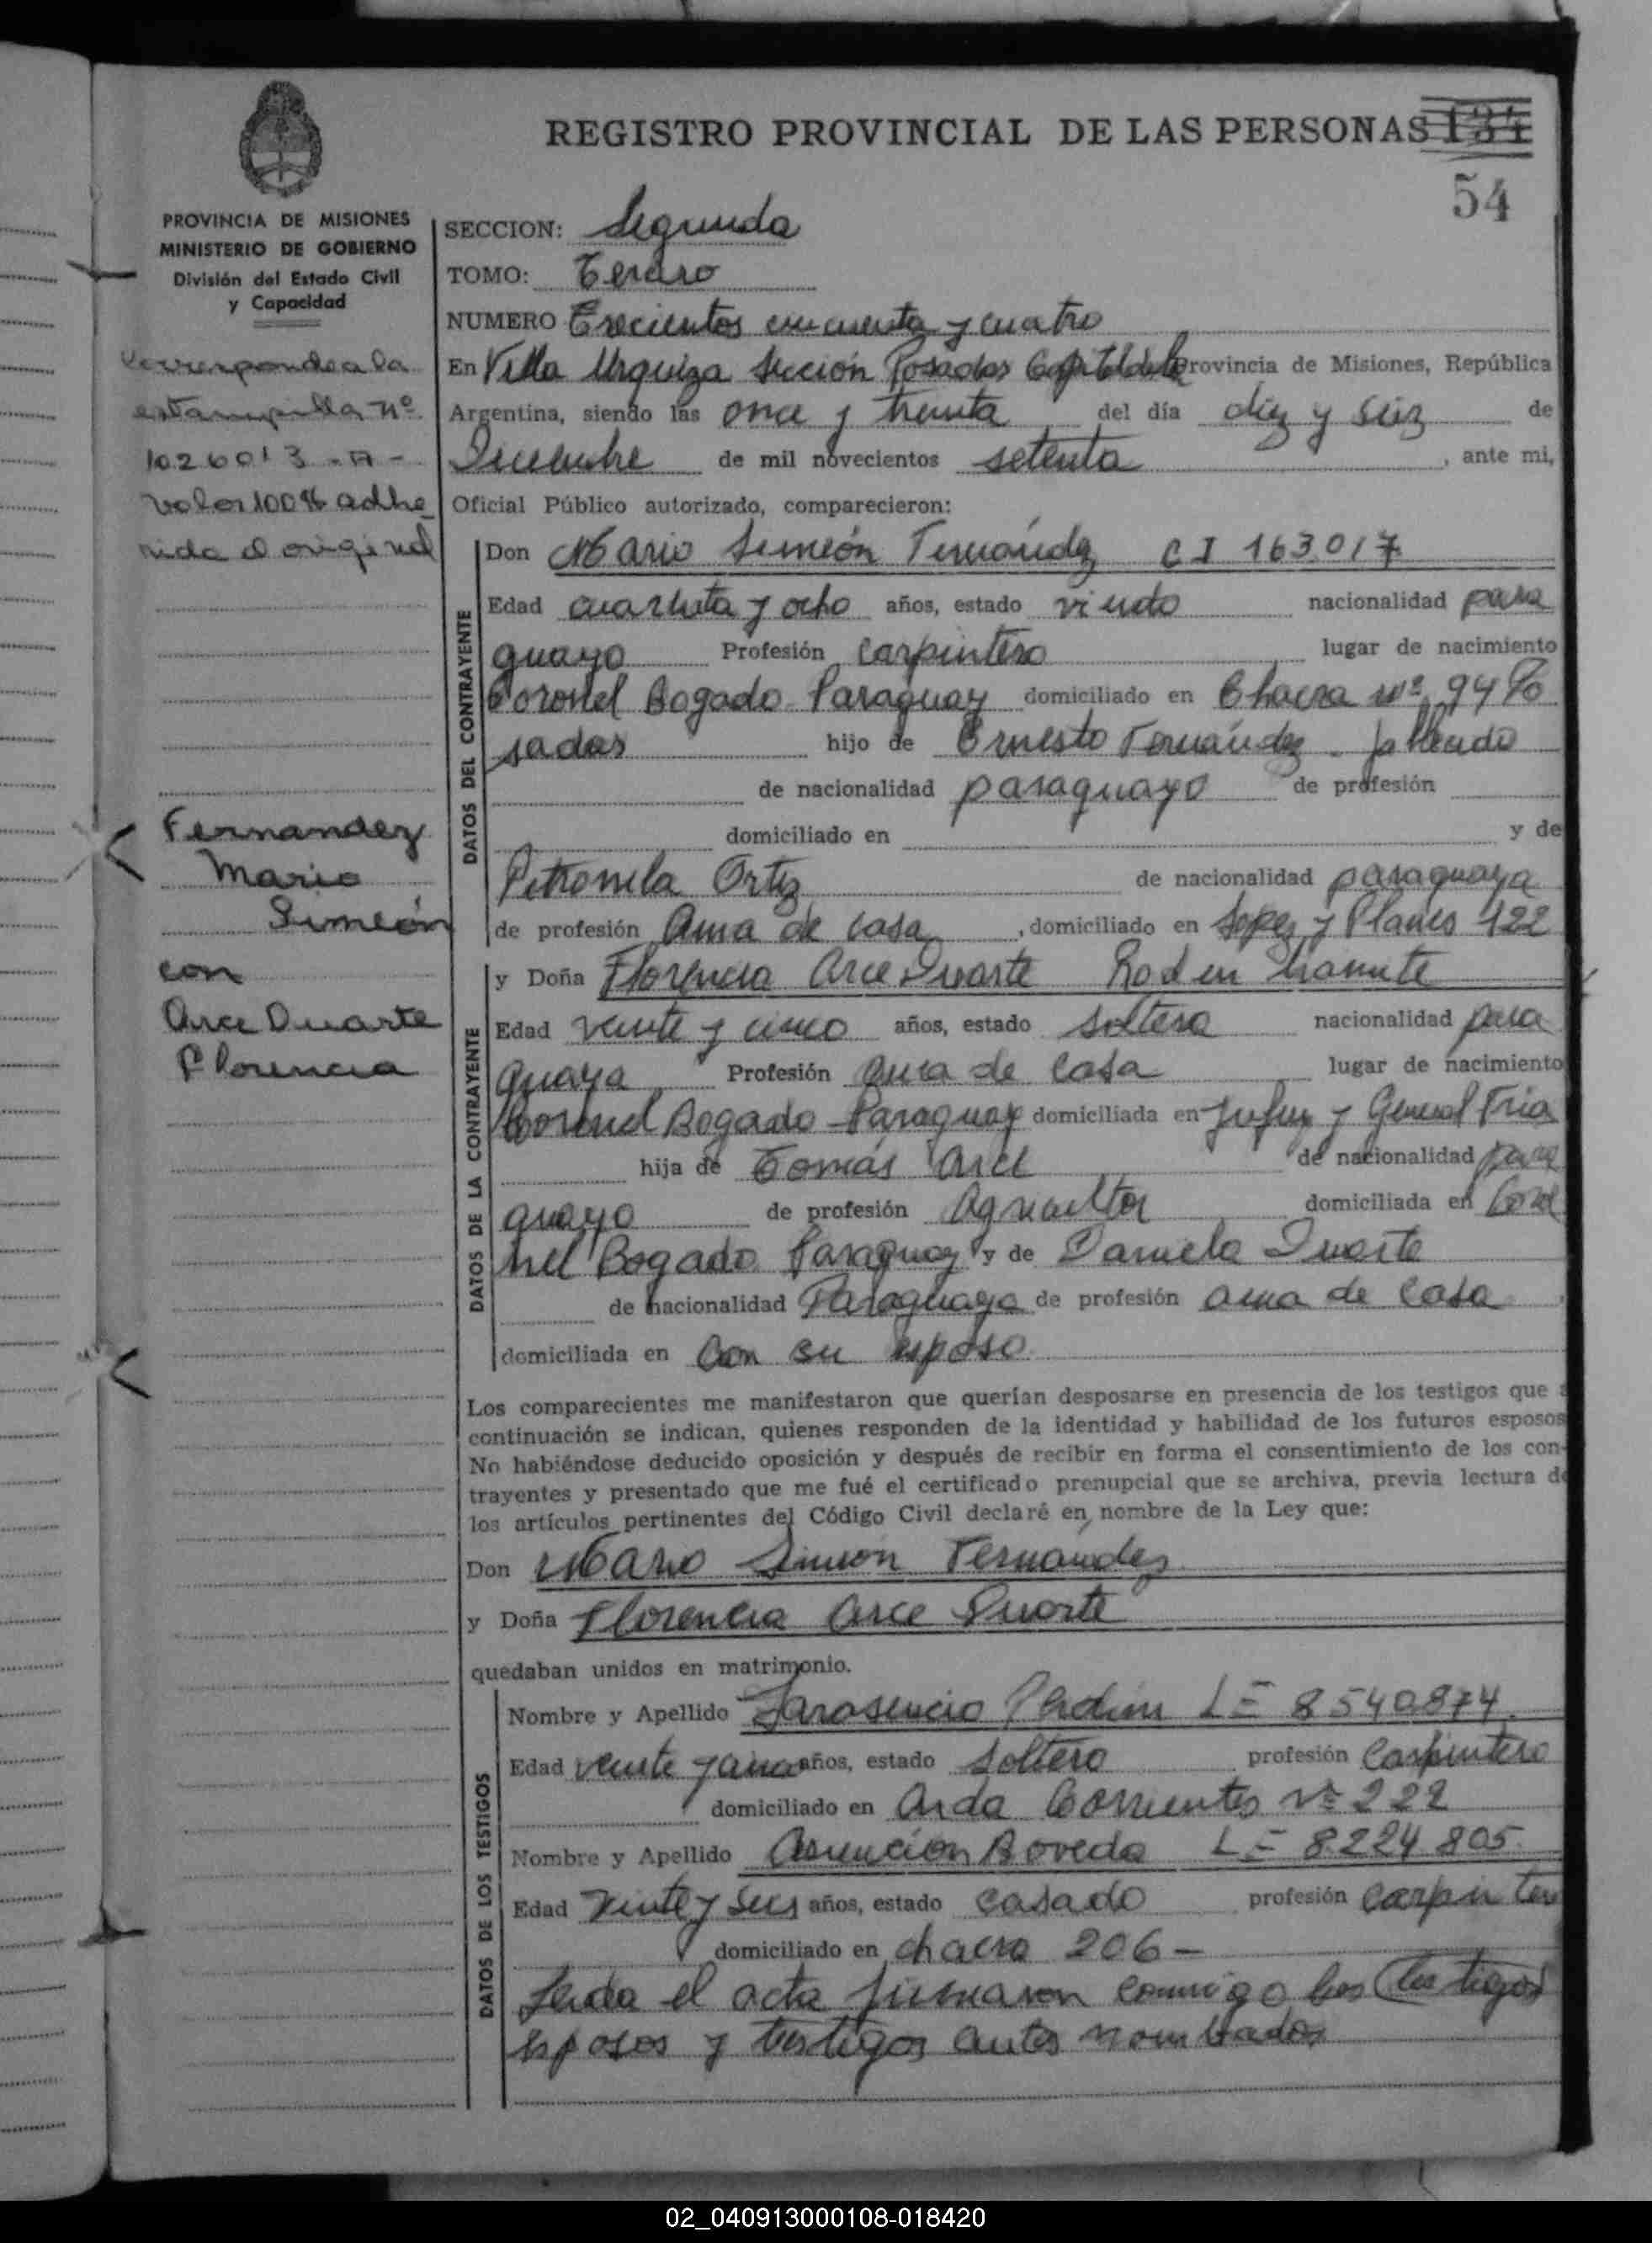 REGISTRO PROVINCIAL DE LAS PERSONAS 134
54
PROVINCIA DE MISIONES
MINISTERIO DE GOBIERNO
División del Estado Civil
y Capacidad
corresponde a la
estampilla nº
1026013-A-
valor 100 $ adhe
rida al original
Fernandez
Mario
Simeón
con
Arce Duarte
Florencia
SECCION: Segunda
TOMO: Tercero
NUMERO Trecientos cincuenta y cuatro
En Villa Urquiza Sección Posadas Capital de la Provincia de Misiones, República
Argentina, siendo las once y treinta del día diez y seis de
Diciembre de mil novecientos setenta, ante mi,
Oficial Público autorizado, comparecieron:
DATOS DEL CONTRAYENTE
Don Mario Simeón Fernández C I 163.017
Edad cuarenta y ocho años, estado viudo nacionalidad para
guayo Profesión carpintero lugar de nacimiento
Coronel Bogado Paraguay domiciliado en Chacra nº 94 Po
sadas hijo de Ernesto Fernández - fallecido
de nacionalidad paraguayo de profesión
domiciliado en y de
Petronila Ortiz de nacionalidad paraguaya
de profesión Ama de casa, domiciliado en Lopez y Planes 122
DATOS DE LA CONTRAYENTE
y Doña Florencia Arce Duarte Rad en tramite
Edad veinte y cinco años, estado soltera nacionalidad para
guaya Profesión Ama de Casa lugar de nacimiento
Coronel Bogado Paraguay domiciliada en Jujuy y General Fria
hija de Tomás Arce de nacionalidad para
guayo de profesión Agricultor domiciliada en Coro
nel Bogado Paraguay y de Daniela Duarte
de nacionalidad Paraguaya de profesión ama de casa
domiciliada en Con su esposo
Los comparecientes me manifestaron que querían desposarse en presencia de los testigos que a
continuación se indican, quienes responden de la identidad y habilidad de los futuros esposos
No habiéndose deducido oposición y después de recibir en forma el consentimiento de los con-
trayentes y presentado que me fué el certificado prenupcial que se archiva, previa lectura de
los artículos pertinentes del Código Civil declaré en nombre de la Ley que:
Don Mario Simeon Fernández
y Doña Florencia Arce Duarte
quedaban unidos en matrimonio.
DATOS DE LOS TESTIGOS
Nombre y Apellido LE 8540874
Edad veinte y años, estado soltero profesión Carpintero
domiciliado en Avda Corrientes Nº 222
Nombre y Apellido Asunción Boveda LE 8.224.805
Edad Veinte y Seis años, estado casado profesión carpintero
domiciliado en chacra 206-
Leida el acta firmaron conmigo los testigos
esposos y testigos antes nombrados
02_040913000108-018420